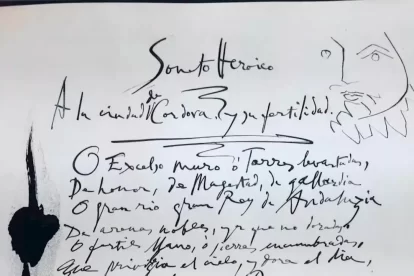 Soneto Heroico
A la ciudad de Cordova y su fertilidad.
O Excelso muro ô Torres levantadas,
De honor, de Magestad, de gallardia
O gran rio gran Rey de Andaluzia
De arenas nobles, ya que no doradas
O fertil llano, o sierras encumbradas,
Que privilegia el cielo, y dora el dia,